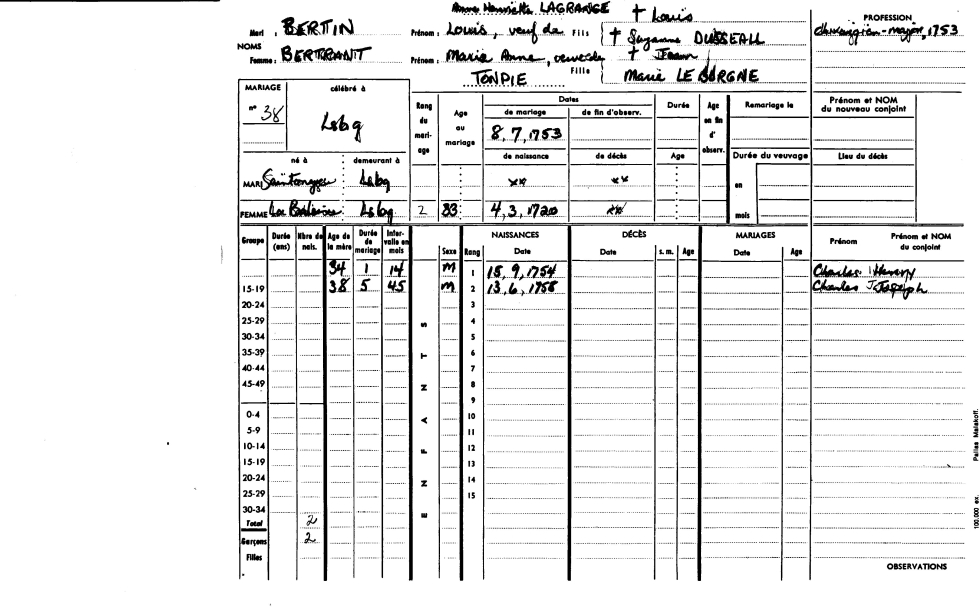 Anne Henriette LAGRANGE † Louis
Mari : BERTIN Prénom : Louis, veuf de Fils † Suzanne DUSSEAU
PROFESSION
chirurgien-major, 1753
NOMS
Femme : BERTRANT Prénom : Marie Anne, veuve de Fille † Jean
TONPIE Marie LE BORGNE
MARIAGE célébré à
n° 38 Lsbg
Rang du mari-age
Age au mariage
Dates
de mariage de fin d'observ.
8,7,1753
Durée
Age en fin d'observ.
Remariage le
Prénom et NOM du nouveau conjoint
né à demeurant à
de naissance de décès Age
Durée du veuvage
Lieu du décès
MARI Lsbg ** ** en
FEMME Lsbg 2 33 4,3,1720 ** mois
Groupe Durée (ans) Nbre de nais. Age de la mère Durée de mariage Inter-valle en mois
ENFANTS
Sexe Rang
NAISSANCES Date
DÉCÈS Date s. m. Age
MARIAGES Date Age
Prénom Prénom et NOM du conjoint
34 1 14 m 1 15,9,1754 Charles Henry
15-19 38 5 45 m 2 13,6,1758 Charles Joseph
20-24 3
25-29 4
30-34 5
35-39 6
40-44 7
45-49 8
9
0-4 10
5-9 11
10-14 12
15-19 13
20-24 14
25-29 15
30-34
Total 2
Garçons 2
Filles
OBSERVATIONS
100.000 ex. Pallas Malakoff.